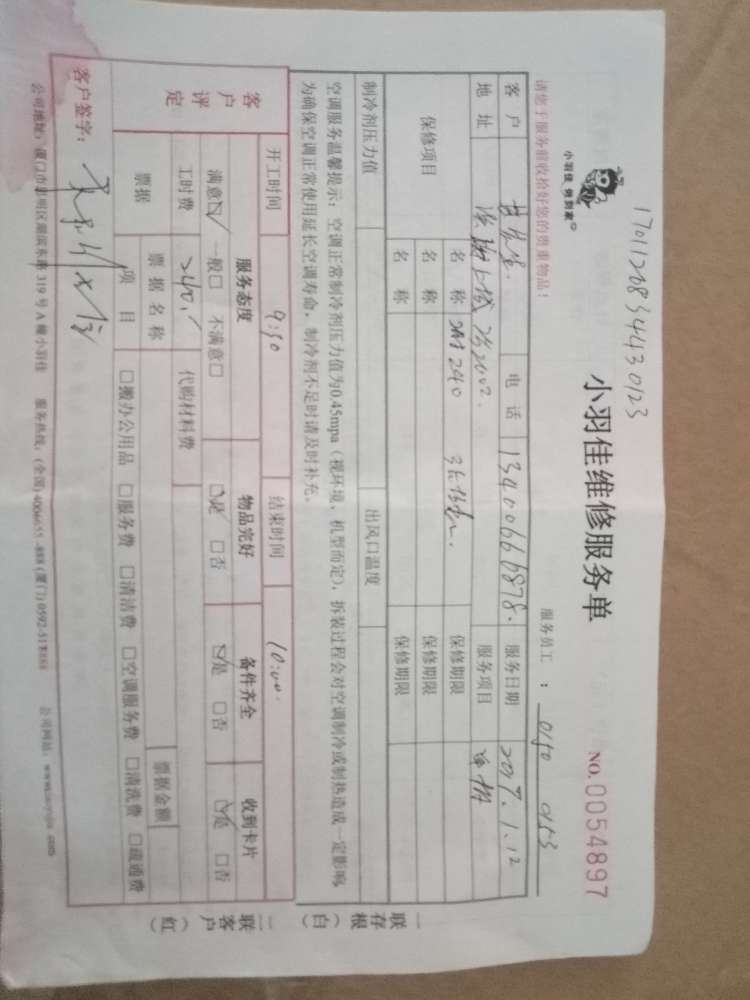 17011208344430123
小羽佳 做到家
小羽佳维修服务单
NO.0054897
服务员工 : 0150 0153
请您于服务前收捡好您的贵重物品！
客 户 电 话 13400666878. 服务日期 2017.1.12
地 址 服务项目
保修项目 名 称 240 保修期限
名 称 保修期限
名 称 保修期限
制冷剂压力值 出风口温度
空调服务温馨提示：空调正常制冷剂压力值为0.45mpa（视环境、机型而定），拆装过程会对空调制冷或制热造成一定影响，
为确保空调正常使用延长空调寿命，制冷剂不足时请及时补充。
开工时间 9:30 结束时间 10:00.
客户评定 服务态度 物品完好 备件齐全 收到卡片
满意☑ 一般□ 不满意□ ☑是 □否 ☑是 □否 ☑是 □否
工时费 240. 代购材料费
票据 票据名称 票据金额
项 目 □搬办公用品 □服务费 □清洁费 □空调服务费 □清洗费 □疏通费
客户签字：
公司地址：厦门市思明区湖滨东路 319 号 A 幢小羽佳 服务热线：(全国) 4006655 -888 (厦门) 0592- 公司网站：
一联存根（白）
二联客户（红）